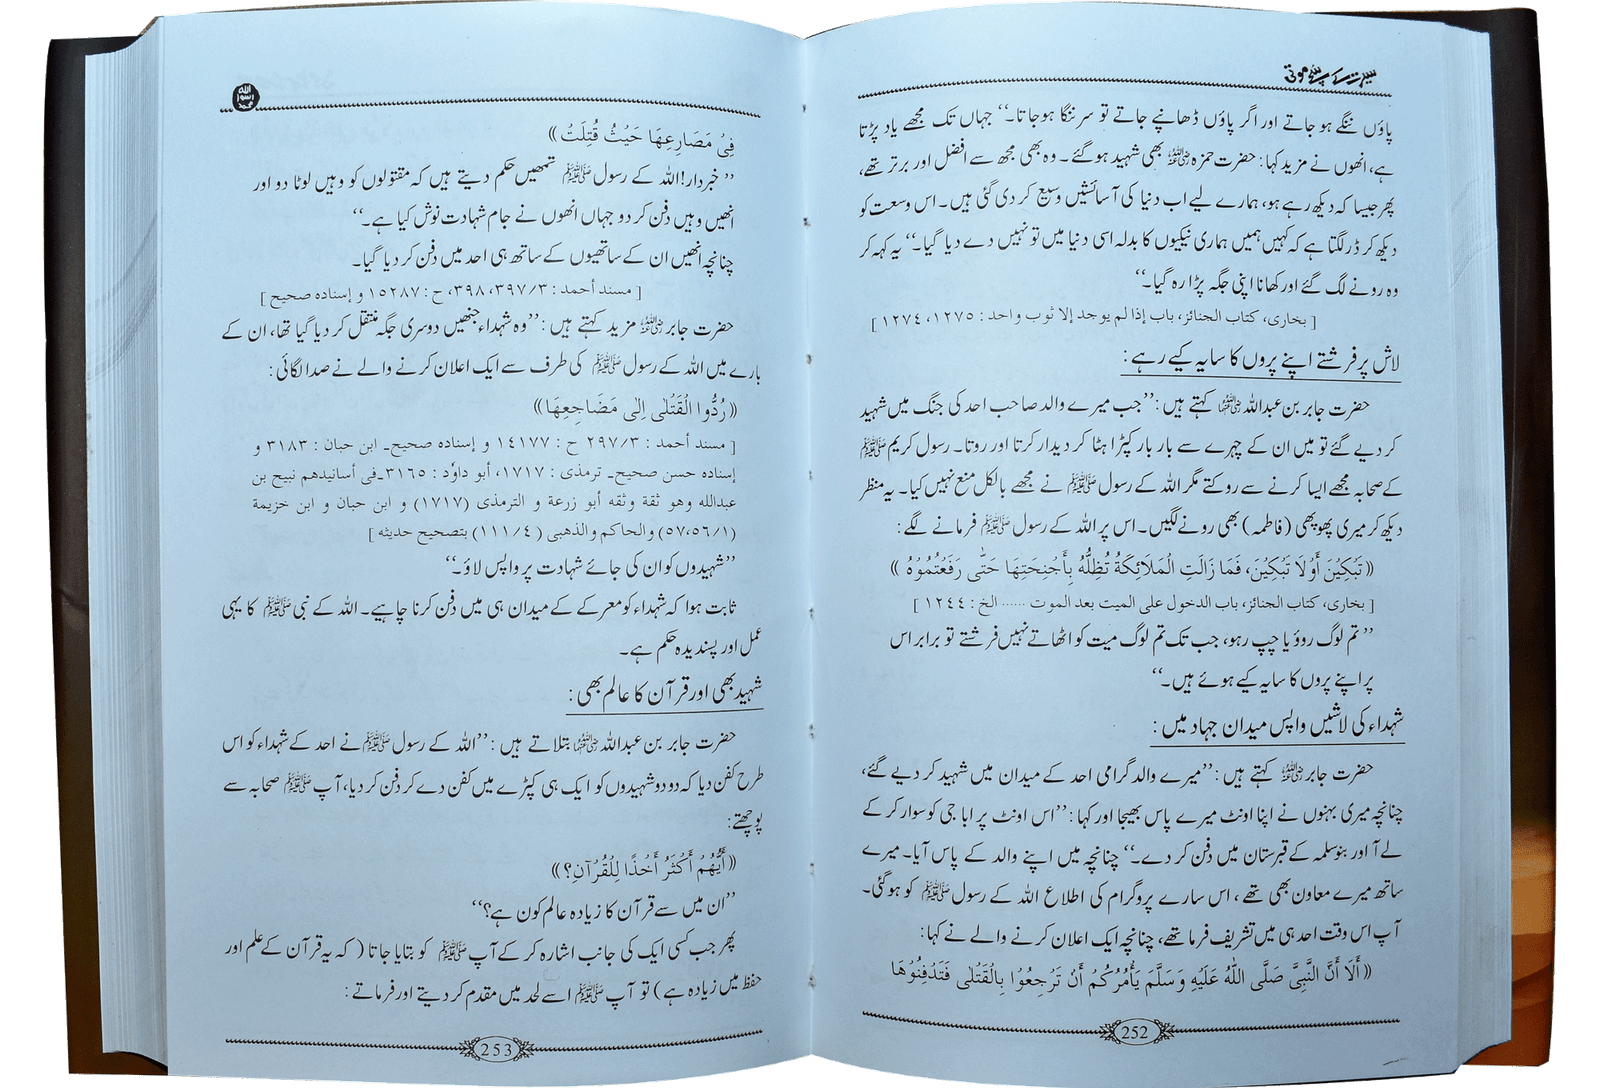 سیرت کے سچے موتی
پاؤں ننگے ہو جاتے اور اگر پاؤں ڈھانپے جاتے تو سر ننگا ہو جاتا۔‘‘ جہاں تک مجھے یاد پڑتا
ہے، انھوں نے مزید کہا: حضرت حمزہ رضی اللہ عنہ بھی شہید ہو گئے۔ وہ بھی مجھ سے افضل اور برتر تھے،
پھر جیسا کہ دیکھ رہے ہو، ہمارے لیے اب دنیا کی آسائشیں وسیع کر دی گئی ہیں۔ اس وسعت کو
دیکھ کر ڈر لگتا ہے کہ کہیں ہمیں ہماری نیکیوں کا بدلہ اسی دنیا میں تو نہیں دے دیا گیا۔‘‘ یہ کہہ کر
وہ رونے لگ گئے اور کھانا اپنی جگہ پڑا رہ گیا۔‘‘
[ بخاری، کتاب الجنائز، باب إذا لم یوجد إلا ثوب واحد : ١٢٧٥، ١٢٧٤ ]
لاش پر فرشتے اپنے پروں کا سایہ کیے رہے:
حضرت جابر بن عبداللہ رضی اللہ عنہما کہتے ہیں: ’’جب میرے والد صاحب احد کی جنگ میں شہید
کر دیے گئے تو میں ان کے چہرے سے بار بار کپڑا ہٹا کر دیدار کرتا اور روتا۔ رسول کریم ﷺ
کے صحابہ مجھے ایسا کرنے سے روکتے مگر اللہ کے رسول ﷺ نے مجھے بالکل منع نہیں کیا۔ یہ منظر
دیکھ کر میری پھوپھی (فاطمہ) بھی رونے لگیں۔ اس پر اللہ کے رسول ﷺ فرمانے لگے:
(( تَبْكِيْنَ أَوْ لَا تَبْكِيْنَ، فَمَا زَالَتِ الْمَلَائِكَةُ تُظِلُّهُ بِأَجْنِحَتِهَا حَتّٰى رَفَعْتُمُوْهُ ))
[ بخاری، کتاب الجنائز، باب الدخول علی المیت بعد الموت ...... الخ : ١٢٤٤ ]
’’ تم لوگ روؤ یا چپ رہو، جب تک تم لوگ میت کو اٹھاتے نہیں فرشتے تو برابر اس
پر اپنے پروں کا سایہ کیے ہوئے ہیں۔‘‘
شہداء کی لاشیں واپس میدان جہاد میں:
حضرت جابر رضی اللہ عنہ کہتے ہیں: ’’میرے والد گرامی احد کے میدان میں شہید کر دیے گئے،
چنانچہ میری بہنوں نے اپنا اونٹ میرے پاس بھیجا اور کہا: ’’اس اونٹ پر ابا جی کو سوار کر کے
لے آ اور بنو سلمہ کے قبرستان میں دفن کر دے۔‘‘ چنانچہ میں اپنے والد کے پاس آیا۔ میرے
ساتھ میرے معاون بھی تھے، اس سارے پروگرام کی اطلاع اللہ کے رسول ﷺ کو ہو گئی۔
آپ اس وقت احد ہی میں تشریف فرما تھے، چنانچہ ایک اعلان کرنے والے نے کہا:
(( أَلَا أَنَّ النَّبِيَّ صَلَّى اللّٰهُ عَلَيْهِ وَسَلَّمَ يَأْمُرُكُمْ أَنْ تَرْجِعُوْا بِالْقَتْلٰى فَتَدْفِنُوْهَا
252
الله رسول محمد
فِيْ مَصَارِعِهَا حَيْثُ قُتِلَتْ ))
’’ خبردار! اللہ کے رسول ﷺ تمھیں حکم دیتے ہیں کہ مقتولوں کو وہیں لوٹا دو اور
انھیں وہیں دفن کر دو جہاں انھوں نے جام شہادت نوش کیا ہے۔‘‘
چنانچہ انھیں ان کے ساتھیوں کے ساتھ ہی احد میں دفن کر دیا گیا۔
[ مسند أحمد : ٣٩٧/٣، ٣٩٨، ح : ١٥٢٨٧ و إسناده صحیح ]
حضرت جابر رضی اللہ عنہ مزید کہتے ہیں: ’’وہ شہداء جنھیں دوسری جگہ منتقل کر دیا گیا تھا، ان کے
بارے میں اللہ کے رسول ﷺ کی طرف سے ایک اعلان کرنے والے نے صدا لگائی:
(( رُدُّوا الْقَتْلٰى إِلٰى مَضَاجِعِهَا ))
[ مسند أحمد : ٢٩٧/٣ ح : ١٤١٧٧ و إسناده صحیح۔ ابن حبان : ٣١٨٣ و
إسناده حسن صحیح۔ ترمذی : ١٧١٧، أبو داوٗد : ٣١٦٥۔فی أسانیدهم نبیح بن
عبدالله وهو ثقة وثقه أبو زرعة و الترمذی (١٧١٧) و ابن حبان و ابن خزیمة
(٥٧،٥٦/١) والحاکم والذهبی (١١١/٤) بتصحیح حدیثه ]
’’شہیدوں کو ان کی جائے شہادت پر واپس لاؤ۔‘‘
ثابت ہوا کہ شہداء کو معرکے کے میدان ہی میں دفن کرنا چاہیے۔ اللہ کے نبی ﷺ کا یہی
عمل اور پسندیدہ حکم ہے۔
شہید بھی اور قرآن کا عالم بھی:
حضرت جابر بن عبداللہ رضی اللہ عنہما بتلاتے ہیں: ’’اللہ کے رسول ﷺ نے احد کے شہداء کو اس
طرح کفن دیا کہ دو دو شہیدوں کو ایک ہی کپڑے میں کفن دے کر دفن کر دیا، آپ ﷺ صحابہ سے
پوچھتے:
(( أَيُّهُمْ أَكْثَرُ أَخْذًا لِلْقُرْآنِ؟ ))
’’ان میں سے قرآن کا زیادہ عالم کون ہے؟‘‘
پھر جب کسی ایک کی جانب اشارہ کر کے آپ ﷺ کو بتایا جاتا ( کہ یہ قرآن کے علم اور
حفظ میں زیادہ ہے) تو آپ ﷺ اسے لحد میں مقدم کر دیتے اور فرماتے:
253